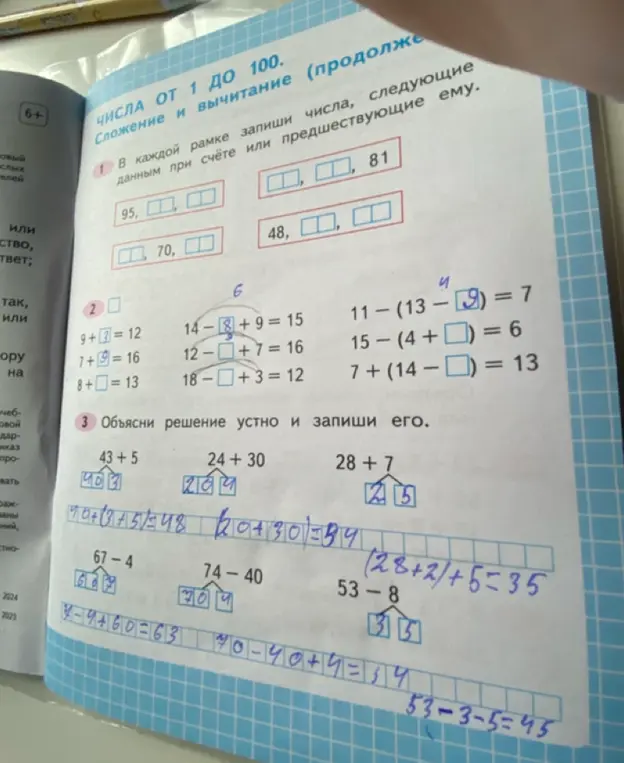 6+
ЧИСЛА ОТ 1 ДО 100.
Сложение и вычитание (продолже
1 В каждой рамке запиши числа, следующие
данным при счёте или предшествующие ему.
95,
, 81
, 70,
48,
2
6
4
9 + = 12
14 – 8 + 9 = 15
11 – (13 – 9) = 7
7 + 9 = 16
12 – + 7 = 16
15 – (4 + ) = 6
8 + = 13
18 – + 3 = 12
7 + (14 – ) = 13
3 Объясни решение устно и запиши его.
43 + 5
24 + 30
28 + 7
40 3
20 4
2 5
40+(3+5)=48
(20+30)=54
(28+2)+5=35
67 – 4
74 – 40
53 – 8
60 7
70 4
3 5
7-4+60=63
70-40+4=34
53-3-5=45
или
ство,
твет;
так,
или
ору
на
2024
2023